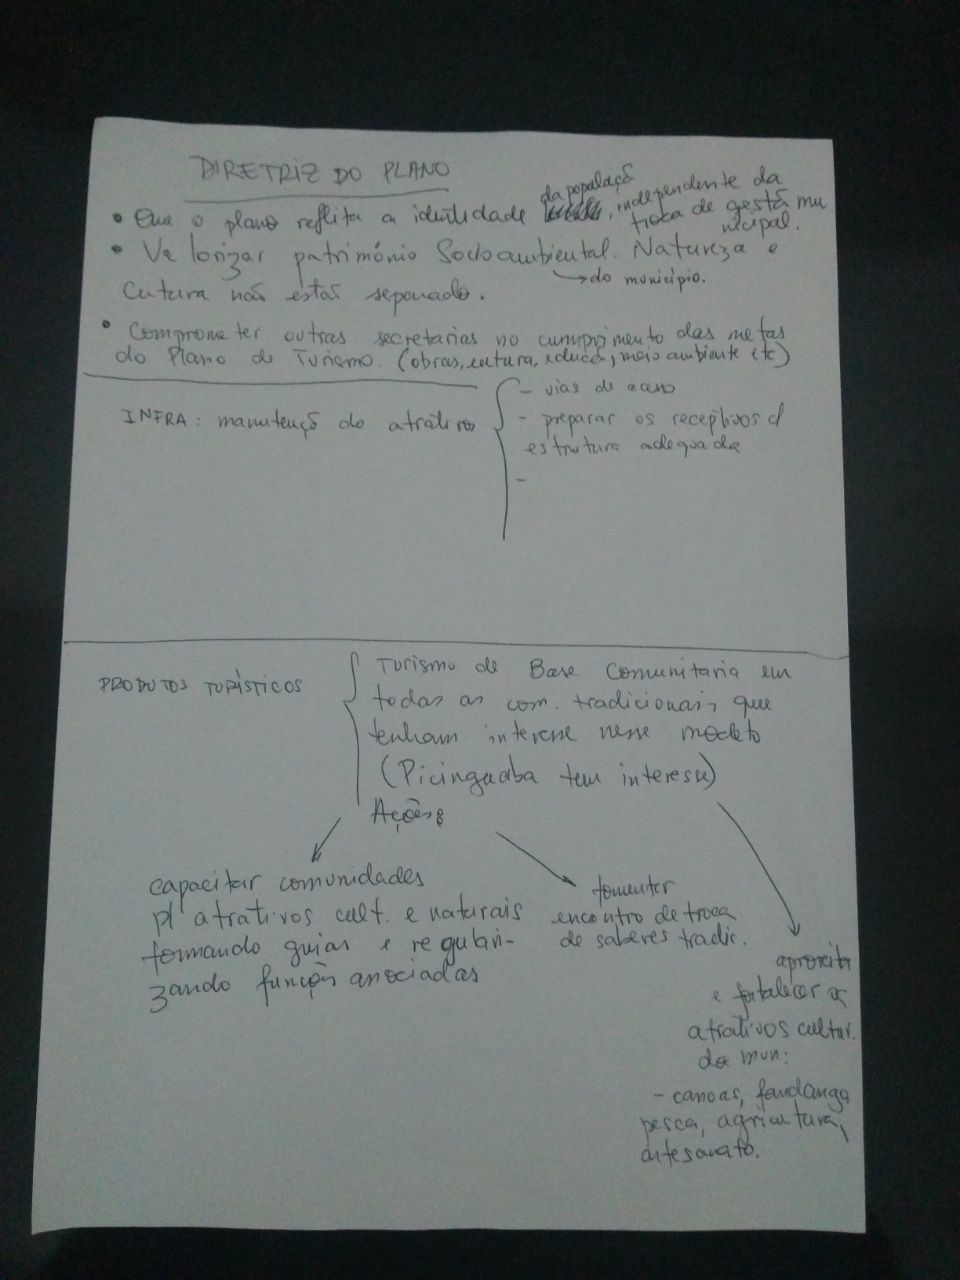 DIRETRIZ DO PLANO
da populaçã
• Que o plano reflita a identidade , independente da
troca de gestã mu
nicipal.
• Valorizar patrimônio Socioambiental. Natureza e
→ do município.
Cutura não estão separado.
• Comprometer outras secretarias no cumprimento das metas
do Plano de Turismo. (obras, cutura, educa, meio ambiente etc)
INFRA: manutençã do atrativos
- vias de acesso
- preparar os receptivos c/
estrutura adequada
-
PRODUTOS TURÍSTICOS
Turismo de Base Comunitaria em
todas as com. tradicionais que
tenham interesse nesse modelo
(Picinguaba tem interesse)
Ações:
capacitar comunidades
p/ atrativos cult. e naturais
formando guias e regulari-
zando funções associadas
fomentar
encontro de troca
de saberes tradic.
aproveitar
e fortalecer os
atrativos cultur.
do mun:
- canoas, fandango
pesca, agricultura,
artesanato.